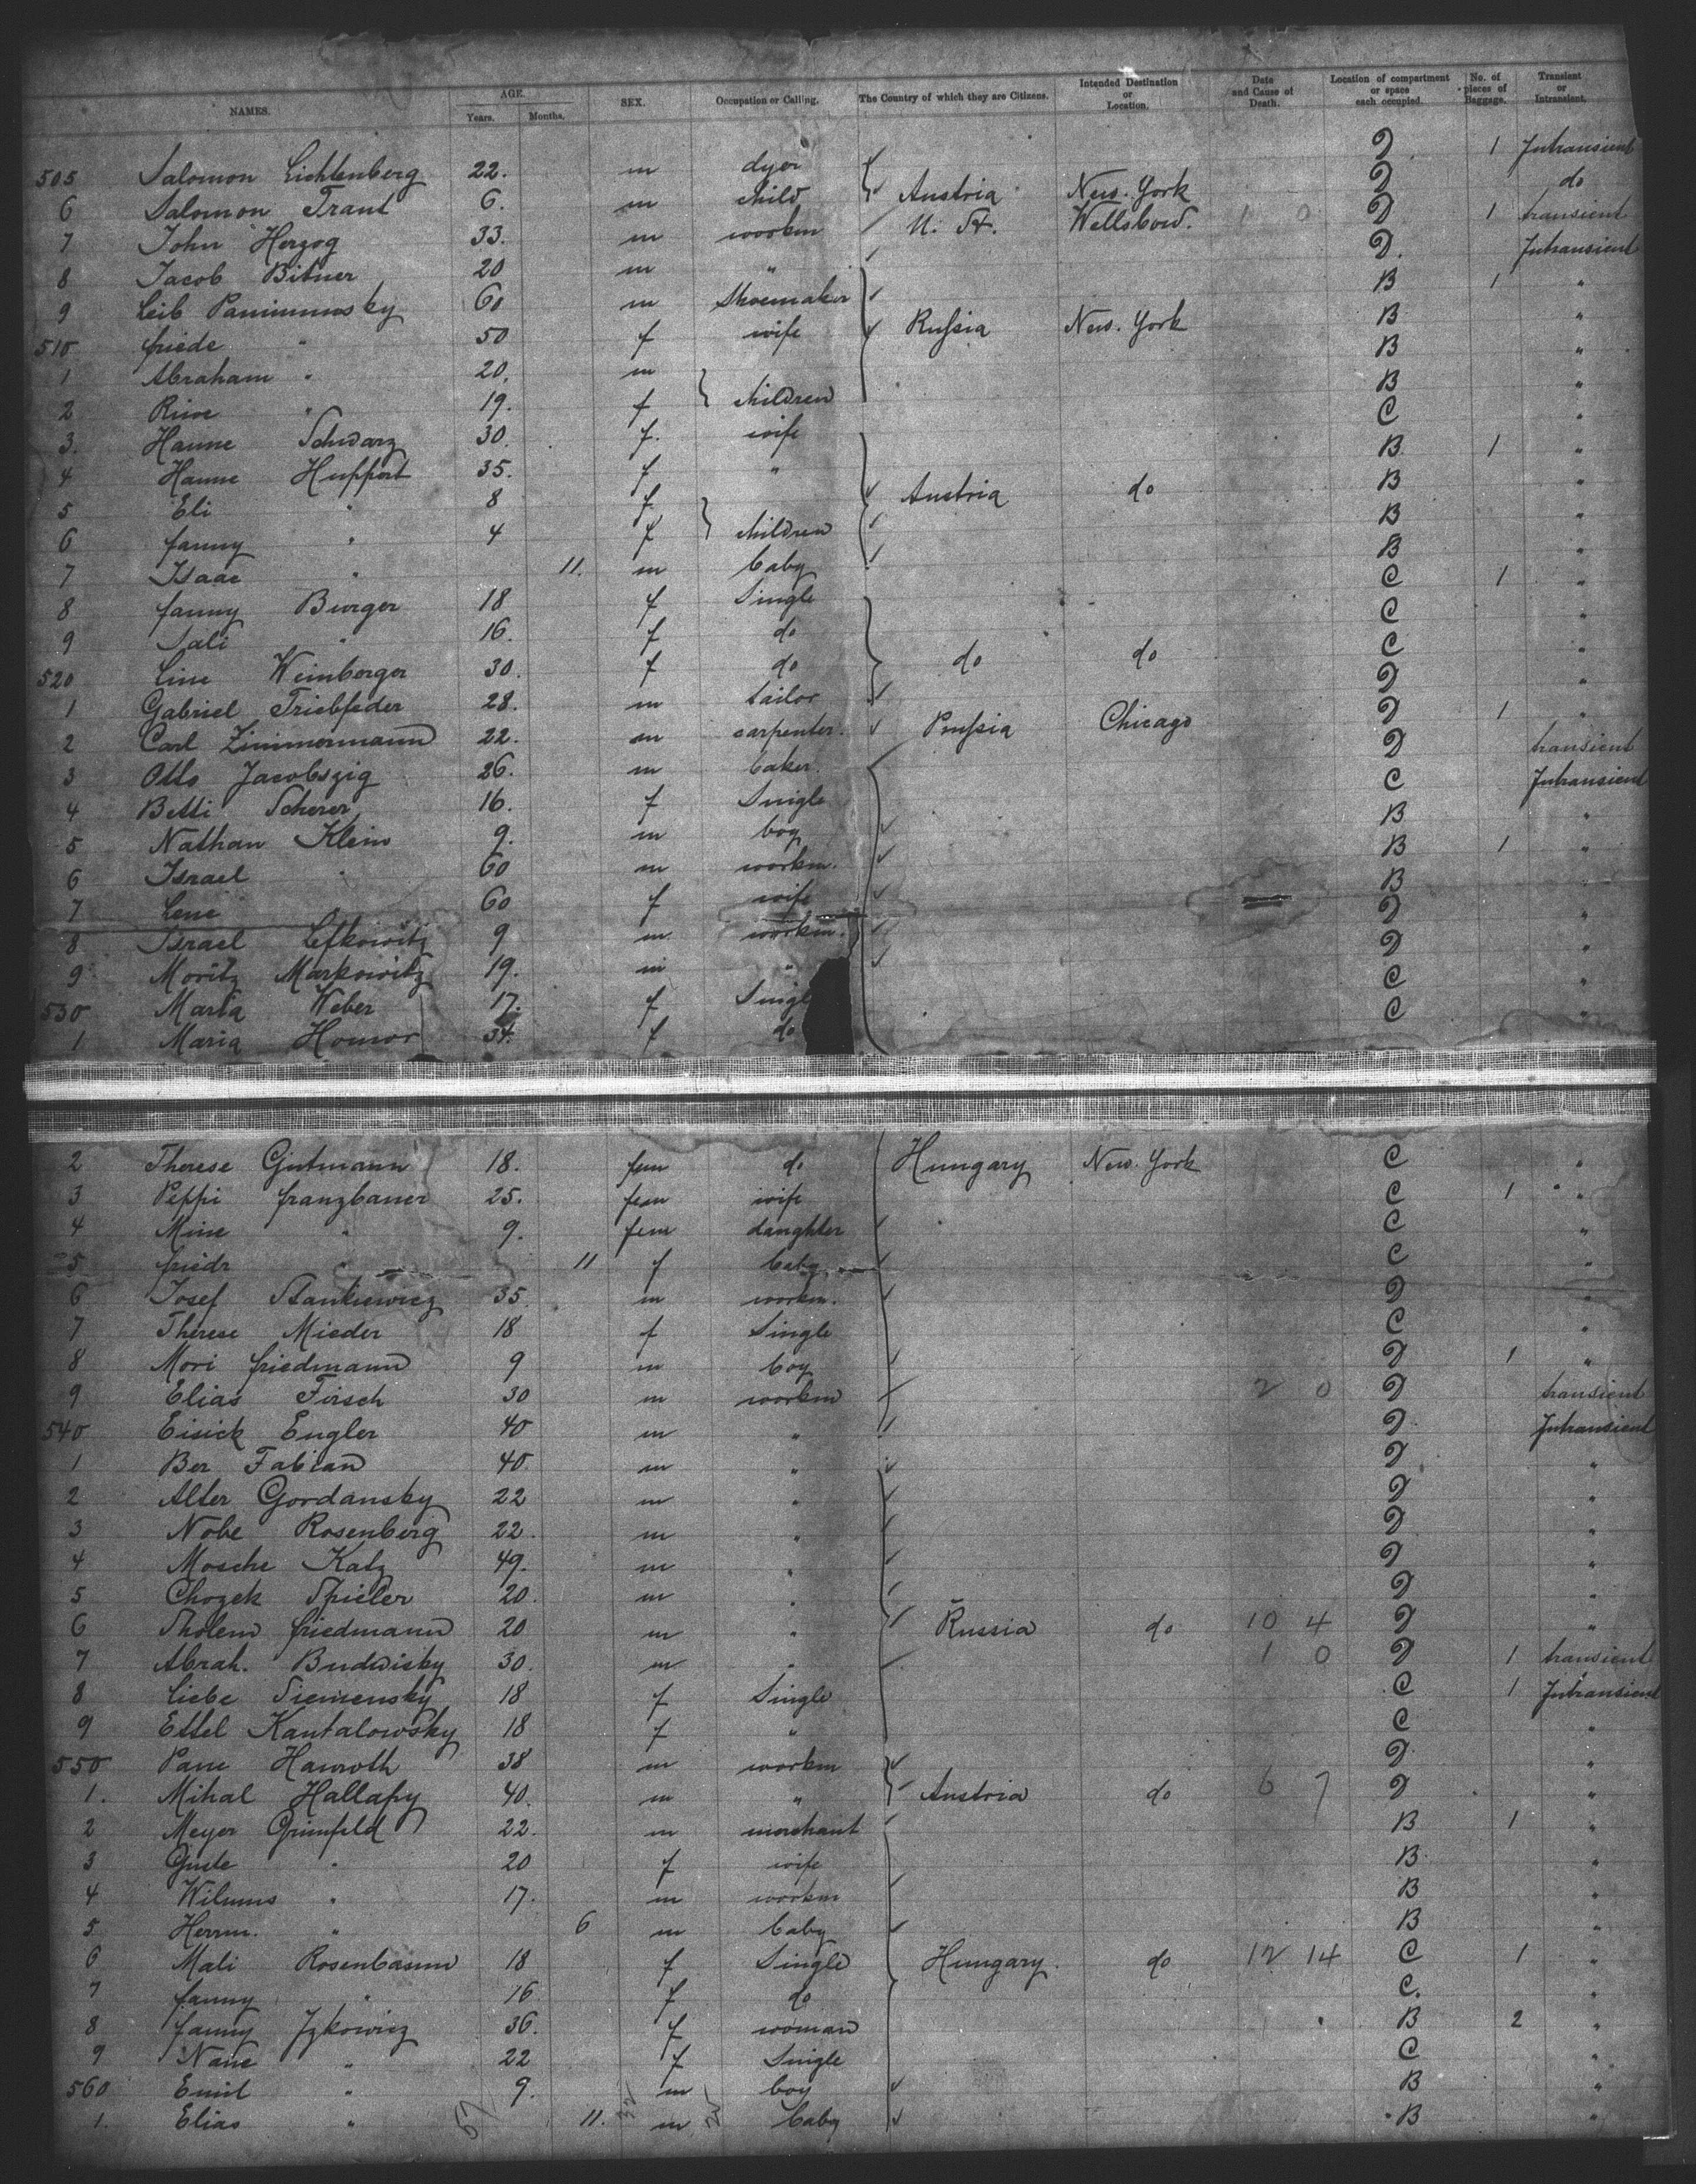 NAMES. AGE. Years. Months. SEX. Occupation or Calling. The Country of which they are Citizens. Intended Destination or Location. Date and Cause of Death. Location of compartment or space each occupied. No. of pieces of Baggage. Transient or Intransient.
505 Salomon Lichtenberg 22. m dyer D 1 Intransient
6 Salomon Traut 6. m child Austria New. York D do
7 John Herzog 33. m workm U. St. Wellsbow. 1 0 D 1 transient
8 Jacob Bitner 20 m " D. Intransient
9 Leib 60 m Shoemaker B 1 "
510 friede " 50 f wife Russia New. York B "
1 Abraham " 20. m B "
2 Riwe " 19. f children B "
3. Hanne Schwarz 30. f. wife C "
4 Hanne Huppert 35. f " B 1 "
5 Eli " 8 f Austria do B "
6 fanny " 4 f children B "
7 Isaac " 11. m baby B "
8 fanny Burger 18 f Single C 1 "
9 Sali " 16. f do C "
520 Line Weinberger 30. f do do do C "
1 Gabriel Triebfeder 28. m tailor D "
2 Carl Zimmermann 22. m carpenter. Prussia Chicago D 1 "
3 Otto Jacobszig 26. m baker. D transient
4 Betti Scherer 16. f Single C Intransient
5 Nathan Klein 9. m boy B "
6 Israel " 60 m workm. B 1 "
7 Lene 60 f wife B
8 Israel Lefkowitz 9 m workm. D "
9 Moritz Markowitz 19. m " D "
530 Maria Weber 17. f Singl C "
1 Maria Homor 34. f do C "
2 Therese Gutmann 18. fem do Hungary New. York C "
3 Peppi franzbauer 25. fem wife C 1 "
4 Mine " 9. fem daughter C "
5 friedr " 11 f baby C "
6 Josef Stankiewicz 35. m workm. D "
7 Therese Mieder 18 f Single C "
8 Mori friedmann 9 m boy D 1 "
9 Elias Firsch 30 m workm 2 0 D transient
540 Eisick Engler 40 m " D Intransient
1 Ber Fabian 40. m " D "
2 Alter Gordansky 22 m " D "
3 Nobe Rosenberg 22. m " D "
4 Mosche Katz 49. m " D "
5 Chozek Spieler 20. m " D "
6 Sholem friedmann 20 m " Russia do 10 4 D "
7 Abrah. Budwisky 30. m " 1 0 D 1 transient
8 Liebe Siemensky 18 f Single C 1 Intransient
9 Ettel Kantalowsky 18 f " C "
550 Pane Hawroth 38 m workm D "
1. Mihal Hallapy 40. m " Austria do 6 7 D "
2 Meyer Grünfeld 22. m merchant B 1 "
3 Guste " 20 f wife B "
4 Wilums " 17. m workm B "
5 Herrm. " 6 m baby B "
6 Mali Rosenbaum 18 f Single Hungary. do 12 14 C 1 "
7 fanny " 16 f do C. "
8 fanny Izkowicz 36. f woman B 2 "
9 Nane " 22 f Single C "
560 Emil " 9. m boy B "
1. Elias " 57 11. 32 m 25 baby B "